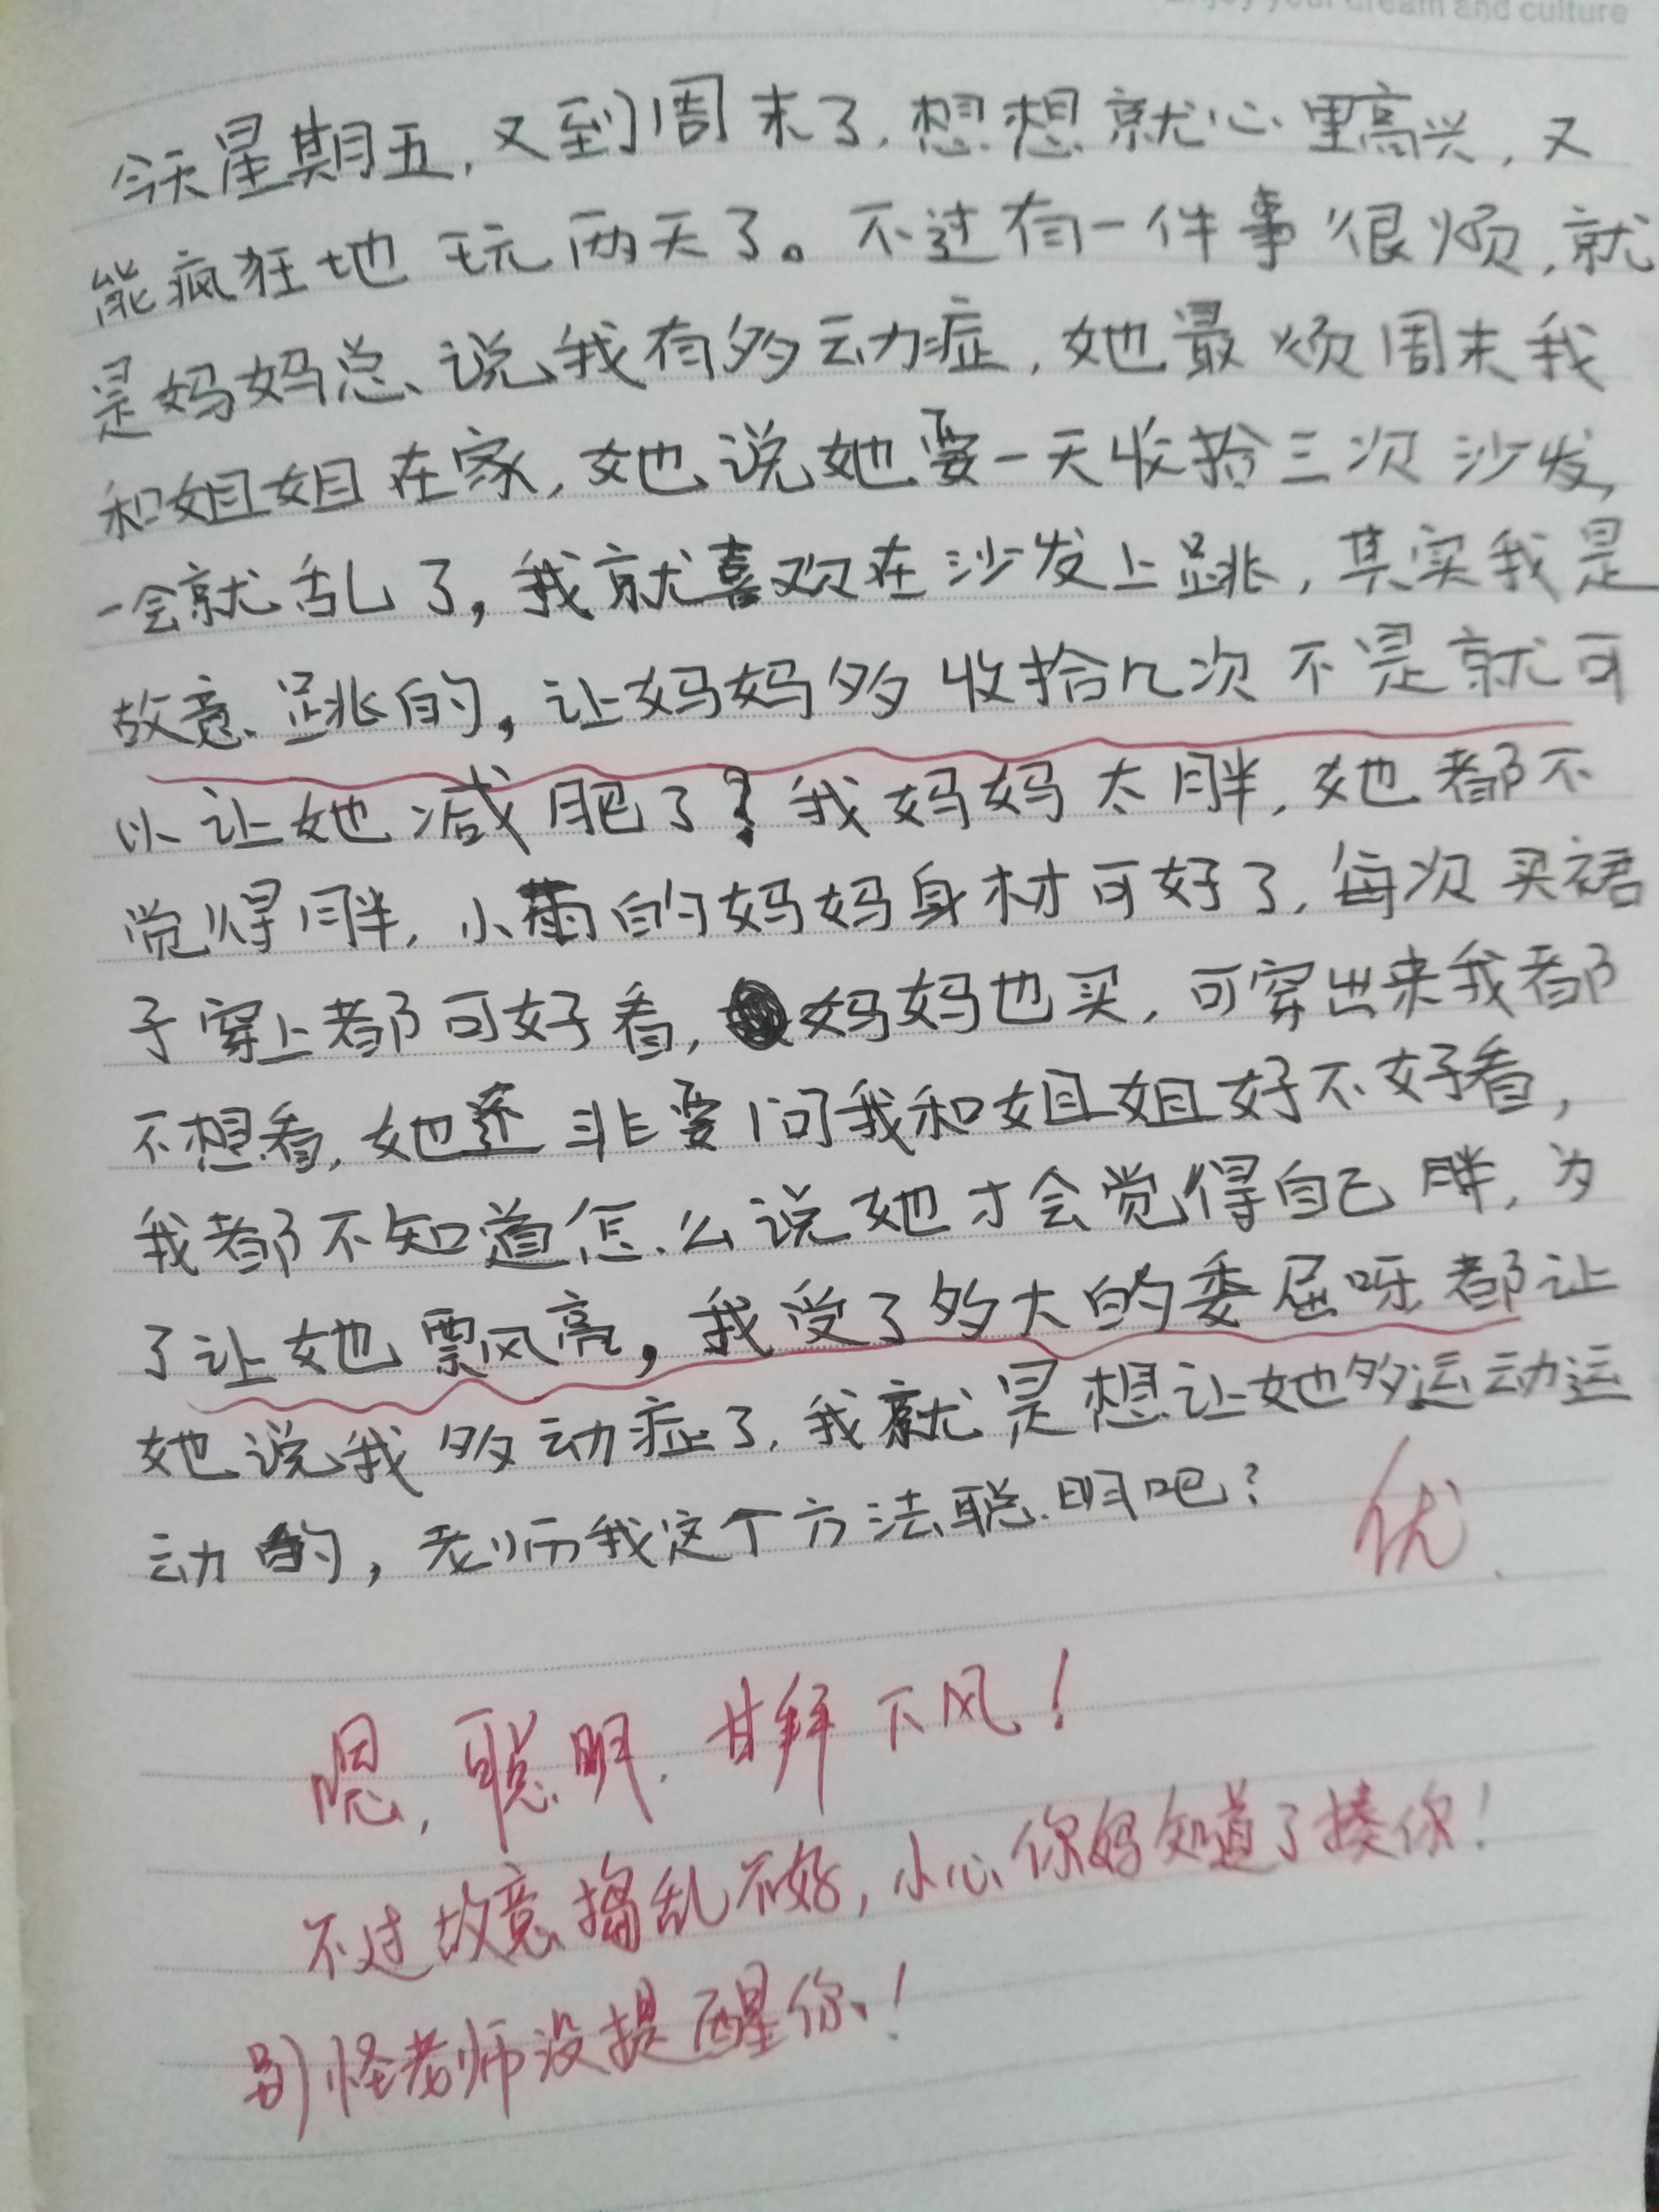 Enjoy your dream and culture
今天星期五,又到周末了,想想就心里高兴,又
能疯狂地玩两天了。不过有一件事很烦,就
是妈妈总说我有多动症,她最烦周末我
和姐姐在家,她说她要一天收拾三次沙发,
一会就乱了,我就喜欢在沙发上跳,其实我是
故意跳的,让妈妈多收拾几次不是就可
以让她减肥了?我妈妈太胖,她都不
觉得胖,小雨的妈妈身材可好了,每次买裙
子穿上都可好看,妈妈也买,可穿出来我都
不想看,她还非要问我和姐姐好不好看,
我都不知道怎么说她才会觉得自己胖,为
了让她飘亮,我受了多大的委屈呀都让
她说我多动症了,我就是想让她多运动运
动的,老师我这个方法聪明吧?
优
嗯,聪明,甘拜下风!
不过故意捣乱不好,小心你妈知道了揍你!
别怪老师没提醒你!